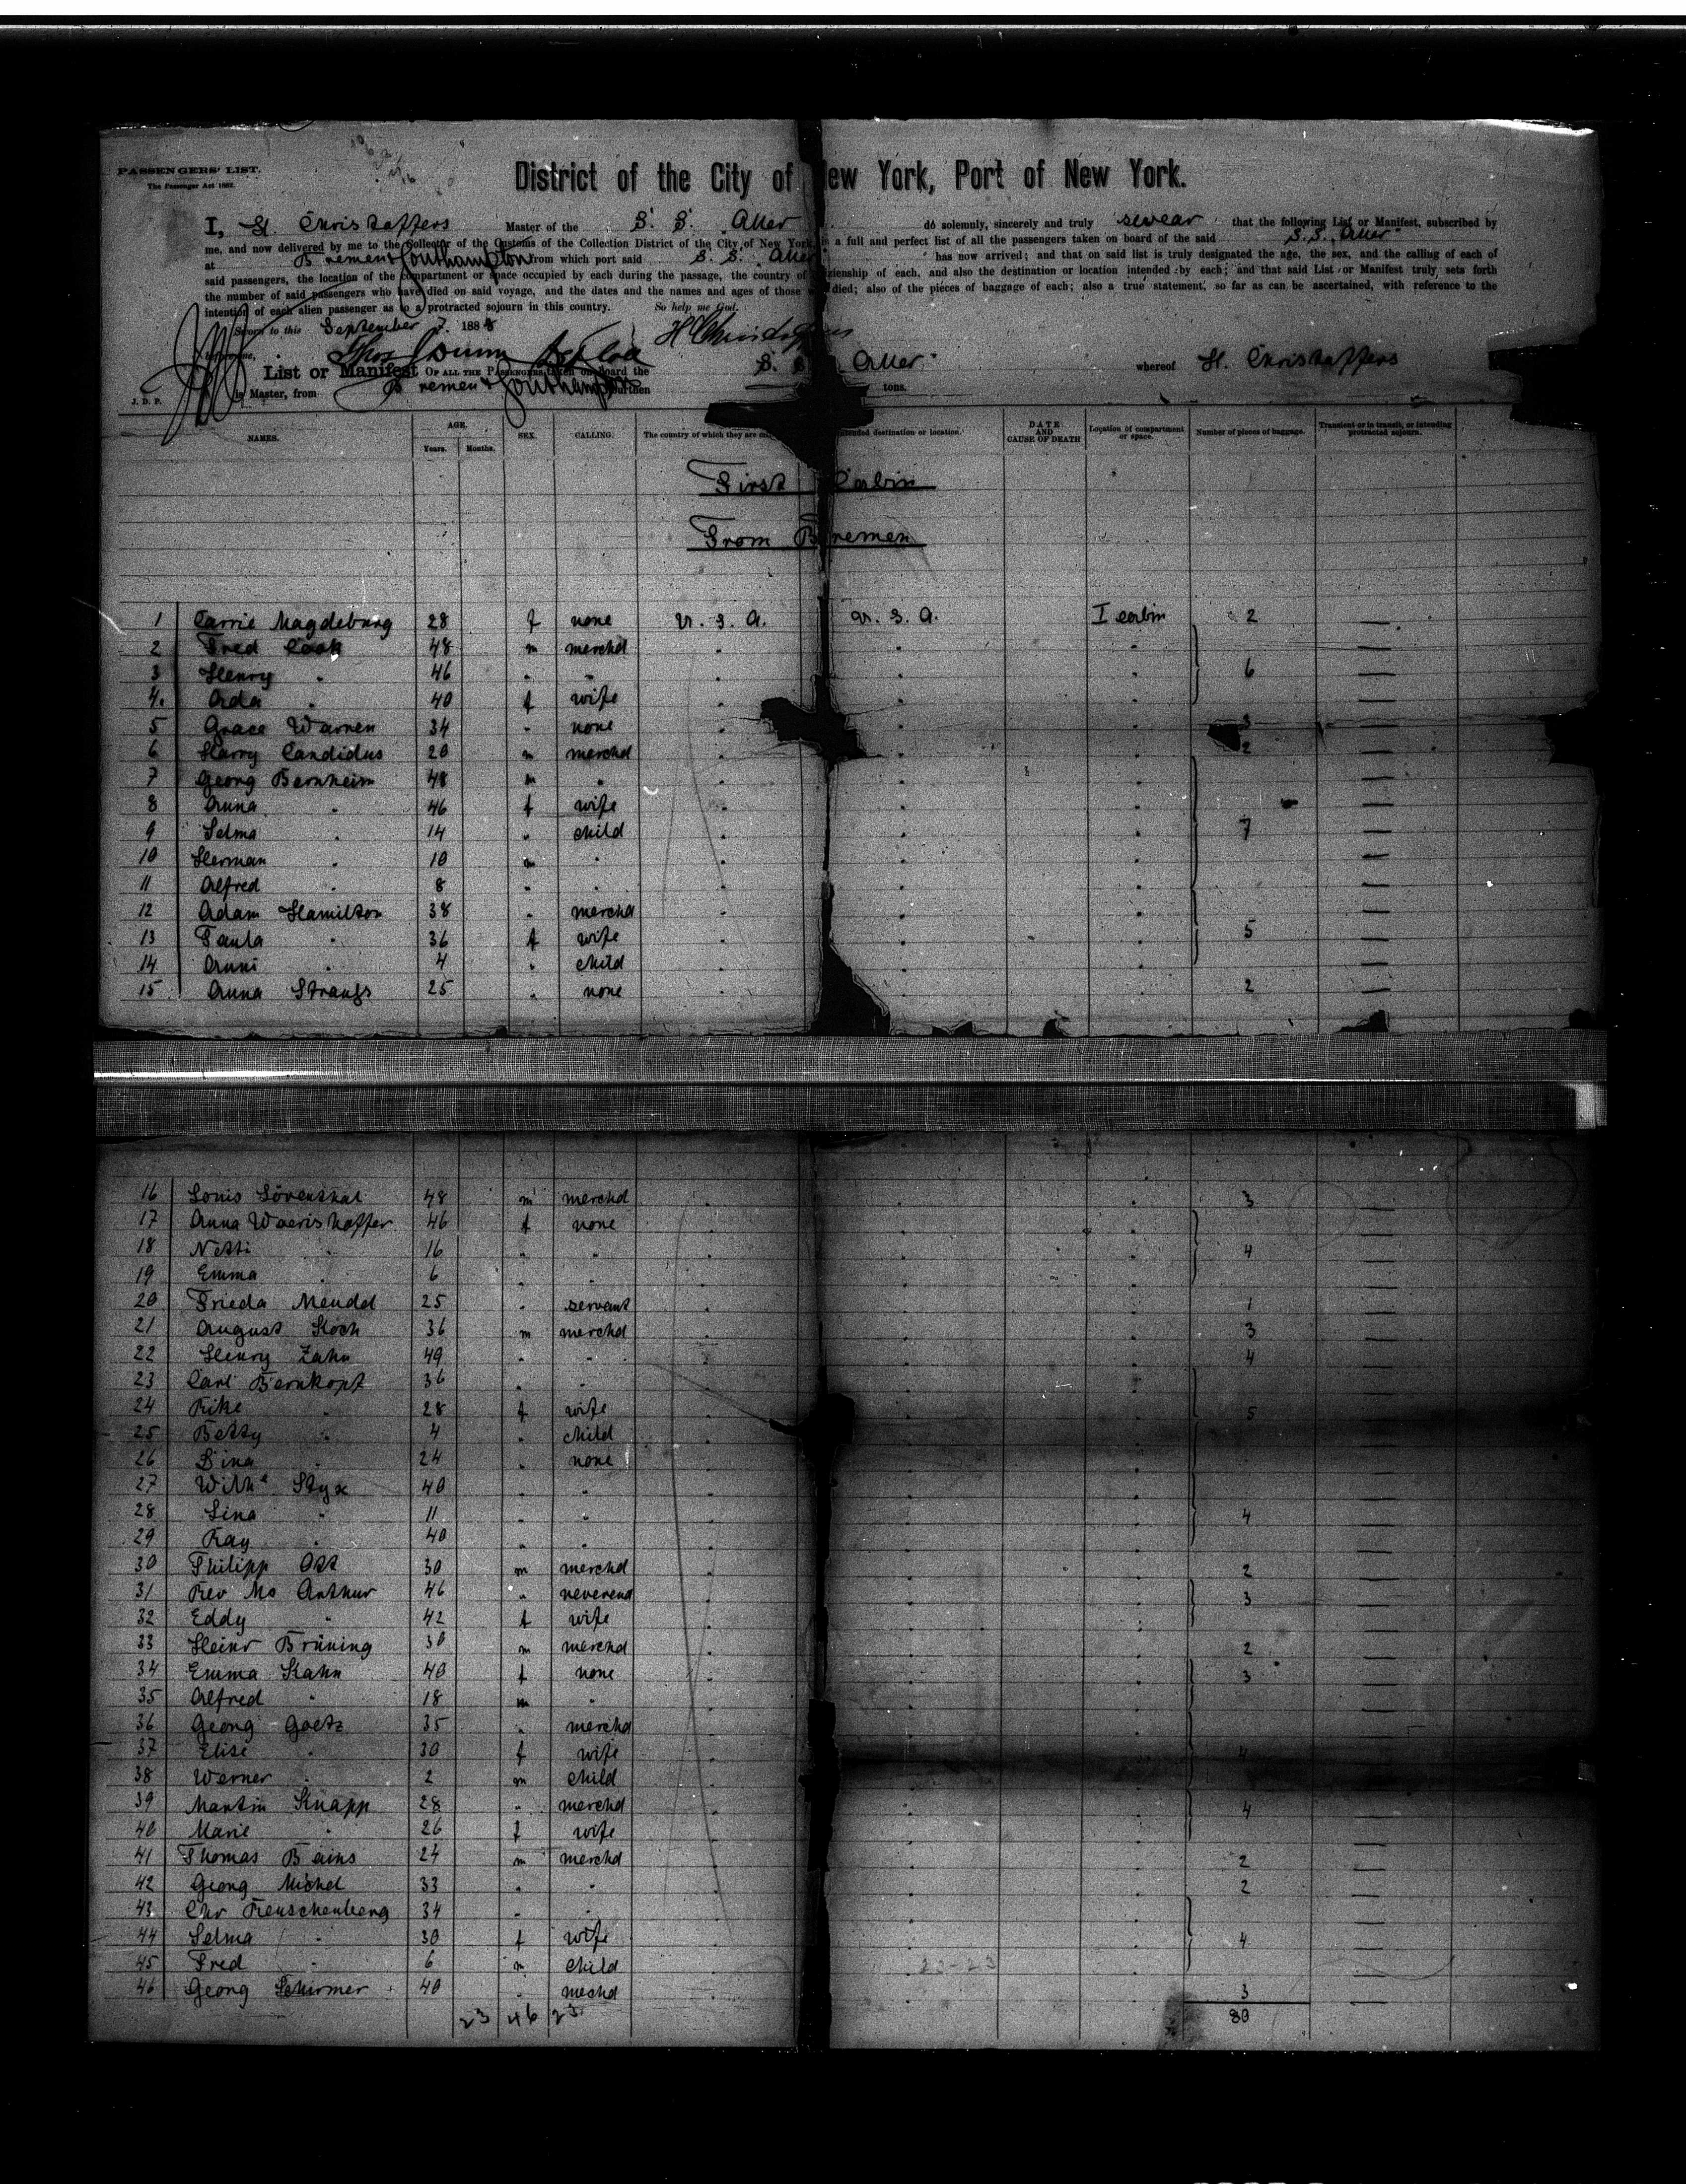 PASSENGERS' LIST.
The Passenger Act 1882.
District of the City of New York, Port of New York.
I, H. Christoffers Master of the S. S. "Aller" do solemnly, sincerely and truly swear that the following List or Manifest, subscribed by
me, and now delivered by me to the Collector of the Customs of the Collection District of the City of New York, is a full and perfect list of all the passengers taken on board of the said S. S. "Aller"
at Bremen & Southampton from which port said S. S. "Aller" has now arrived; and that on said list is truly designated the age, the sex, and the calling of each of
said passengers, the location of the compartment or space occupied by each during the passage, the country of citizenship of each, and also the destination or location intended by each; and that said List or Manifest truly sets forth
the number of said passengers who have died on said voyage, and the dates and the names and ages of those who died; also of the pieces of baggage of each; also a true statement, so far as can be ascertained, with reference to the
intention of each alien passenger as to a protracted sojourn in this country. So help me God.
Sworn to this September 7. 1888 H Christoffers
before me,
List or Manifest OF ALL THE PASSENGERS taken on board the S. S. Aller" whereof H. Christoffers
is Master, from Bremen & Southampton burthen tons.
J. D. P.
NAMES. AGE. Years. Months. SEX. CALLING. The country of which they are intended destination or location. DATE AND CAUSE OF DEATH Location of compartment or space. Number of pieces of baggage. Transient or in transit, or intending protracted sojourn.
First Cabin
From Bremen
1 Carrie Magdeburg 28 f none U. S. A. U. S. A. I cabin 2 —
2 Fred Cook 48 m merchd " " " —
3 Henry " 46 " " " " " 6 —
4. Ada " 40 f wife " " " —
5 Grace Warren 34 " none " " " 3 —
6 Harry Candidus 20 m merchd " " " 2 —
7 Georg Bernheim 48 m " " " " —
8 Anna " 46 f wife " " " —
9 Selma " 14 " child " " " 7 —
10 Herman " 10 m " " " " —
11 Alfred " 8 " " " " " —
12 Adam Hamilton 38 " merchd " " " —
13 Paula " 36 f wife " " " 5 —
14 Anni " 4 " child " " " —
15 Anna Strauss 25 " none " " " 2 —
16 Louis Löventhal 48 m merchd " " " 3 —
17 Anna Woerishoffer 46 f none " " " —
18 Netti " 16 " " " " " 4 —
19 Emma " 6 " " " " " —
20 Frieda Mendel 25 " servant " " " 1 —
21 August Koch 36 m merchd " " " 3 —
22 Henry Zahn 49 " " " " " 4 —
23 Carl Bernkopf 36 " " " " " —
24 Rike " 28 f wife " " " 5 —
25 Betty " 4 " child " " " —
26 Dina " 24 " none " " " —
27 Styx 40 " " " " " —
28 Lina " 11 " " " " " 4 —
29 Ray " 40 " " " " " —
30 Philipp Ott 30 m merchd " " " 2 —
31 Rev Mc Arthur 46 " reverend " " " 3 —
32 Eddy " 42 f wife " " " —
33 Heinr Brüning 30 m merchd " " " 2 —
34 Emma Kahn 40 f none " " " 3 —
35 Alfred " 18 m " " " " —
36 Georg Goetz 35 " merchd " " " —
37 Elise " 30 f wife " " " 4 —
38 Werner " 2 m child " " " —
39 Martin Knapp 28 " merchd " " " 4 —
40 Marie " 26 f wife " " "
41 Thomas Bains 24 m merchd " " " 2 —
42 Georg Michel 33 " " " " " 2 —
43. Chr Reuschenberg 34 " " " " " —
44 Selma " 30 f wife " " " 4 —
45 Fred " 6 m child " " " —
46 Georg Schirmer 40 " mechd " " " 3 —
23 46 23 80
23-23